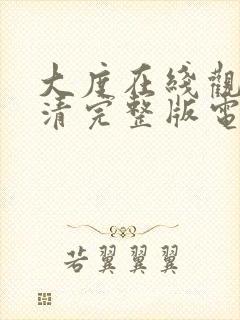 大度在线觀
清完整版電
若翼翼翼